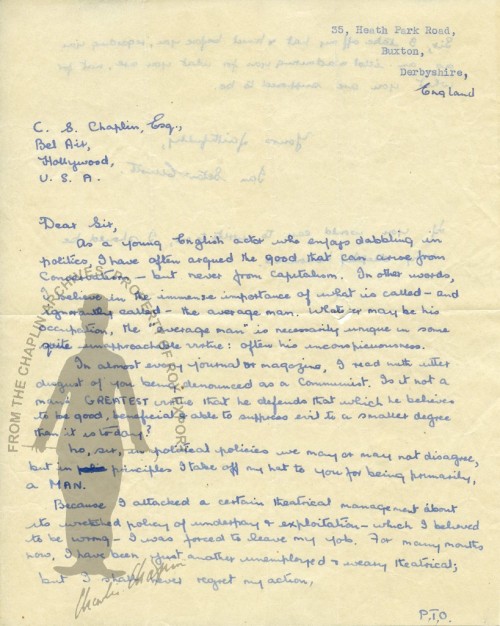 35, Heath Park Road,
Buxton,
Derbyshire,
England
C. S. Chaplin, Esq.,
Bel Air,
Hollywood,
U. S. A.
Dear Sir,
As a young English actor who enjoys dabbling in
politics, I have often argued the good that can arise from
Conservatism — but never from Capitalism. In other words,
I believe in the immense importance of what is called — and
ignorantly called — the average man. Whatever may be his
occupation, the "average man" is necessarily unique in some
quite unapproachable virtue: often his inconspicuousness.
In almost every journal or magazine, I read with utter
disgust of you being denounced as a Communist. Is it not a
man's GREATEST virtue that he defends that which he believes
to be good, beneficial & able to suppress evil to a smaller degree
than it is today?
No, sir, in political policies we may or may not disagree,
but in principles I take off my hat to you for being primarily,
a MAN.
Because I attacked a certain theatrical management about
its wretched policy of underpay & exploitation — which I believed
to be wrong — I was forced to leave my job. For many months
now, I have been just another unemployed & weary theatrical;
but I shall never regret my action,
P.T.O.
FROM THE CHAPLIN ARCHIVES, PROPERTY OF ROY EXPORT
Charles Chaplin